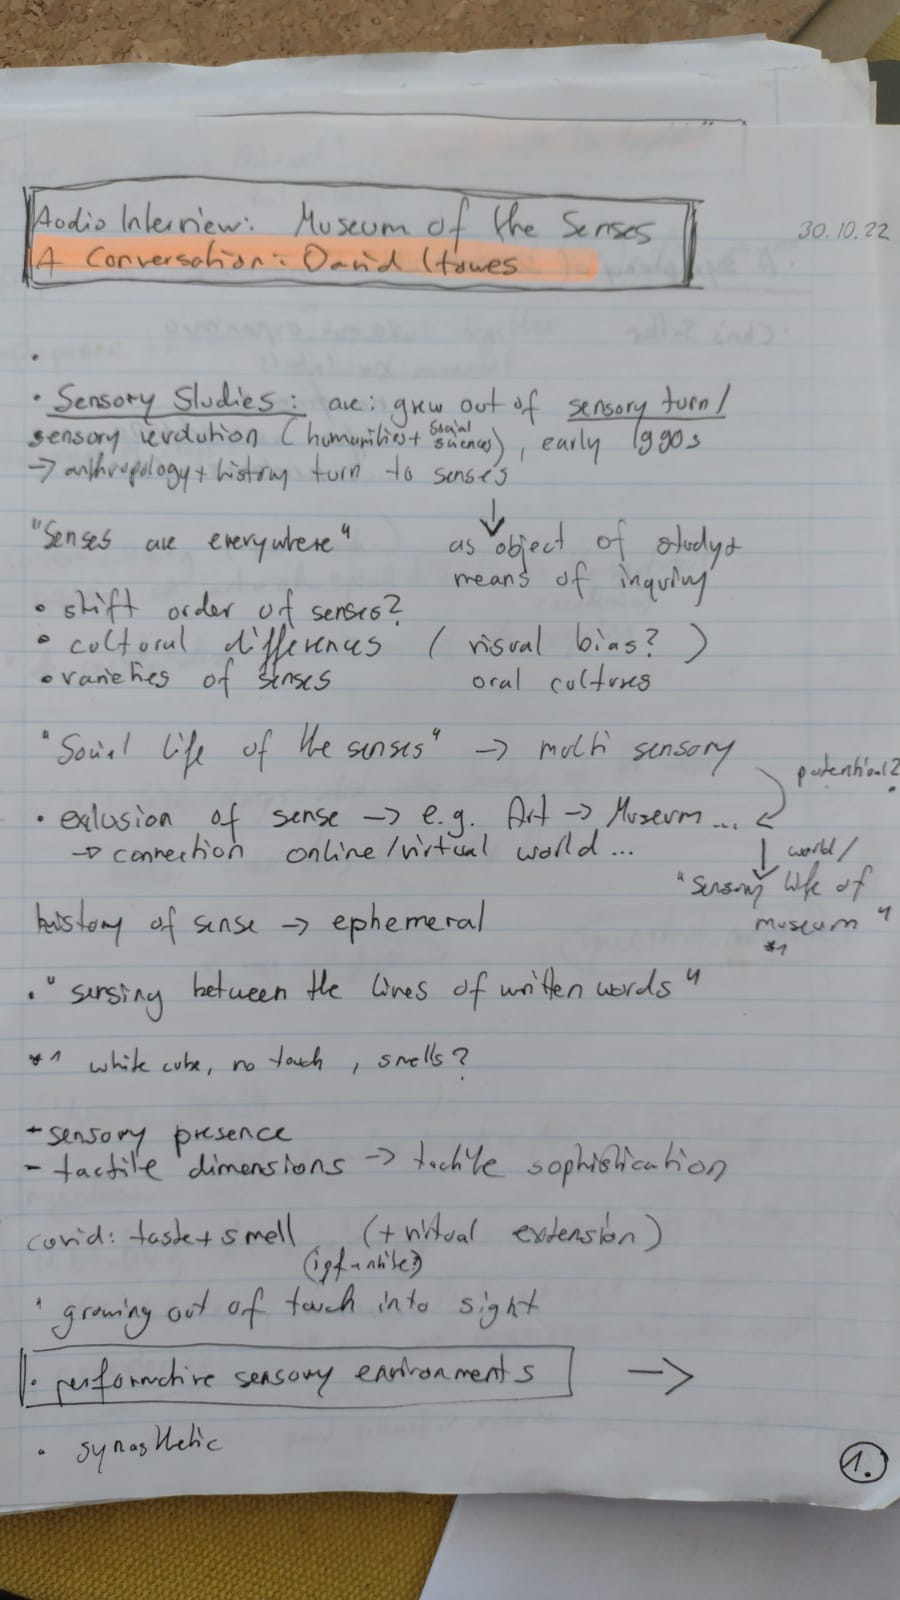 30.10.22
Audio Interview: Museum of the Senses
A Conversation: David Howes
• Sensory Studies: are: grew out of sensory turn/
sensory revolution (humanities + social sciences), early 1990s
→ anthropology + history turn to senses
↓
"Senses are everywhere"
as object of study +
means of inquiry
• shift order of senses?
• cultural differences (visual bias?)
• varieties of senses oral cultures
"Social life of the senses" → multi sensory
potential?
• exlusion of sense → e.g. Art → Museum ...
→ connection online/virtual world ...
↓ world/
"Sensory life of
museum"
*1
history of sense → ephemeral
• "sensing between the lines of written words"
*1 white cube, no touch, smells?
- sensory presence
- tactile dimensions → tactile sophistication
covid: taste + smell (+ virtual extension)
' growing out of touch into sight
• performative sensory environments →
• synasthetic
1.